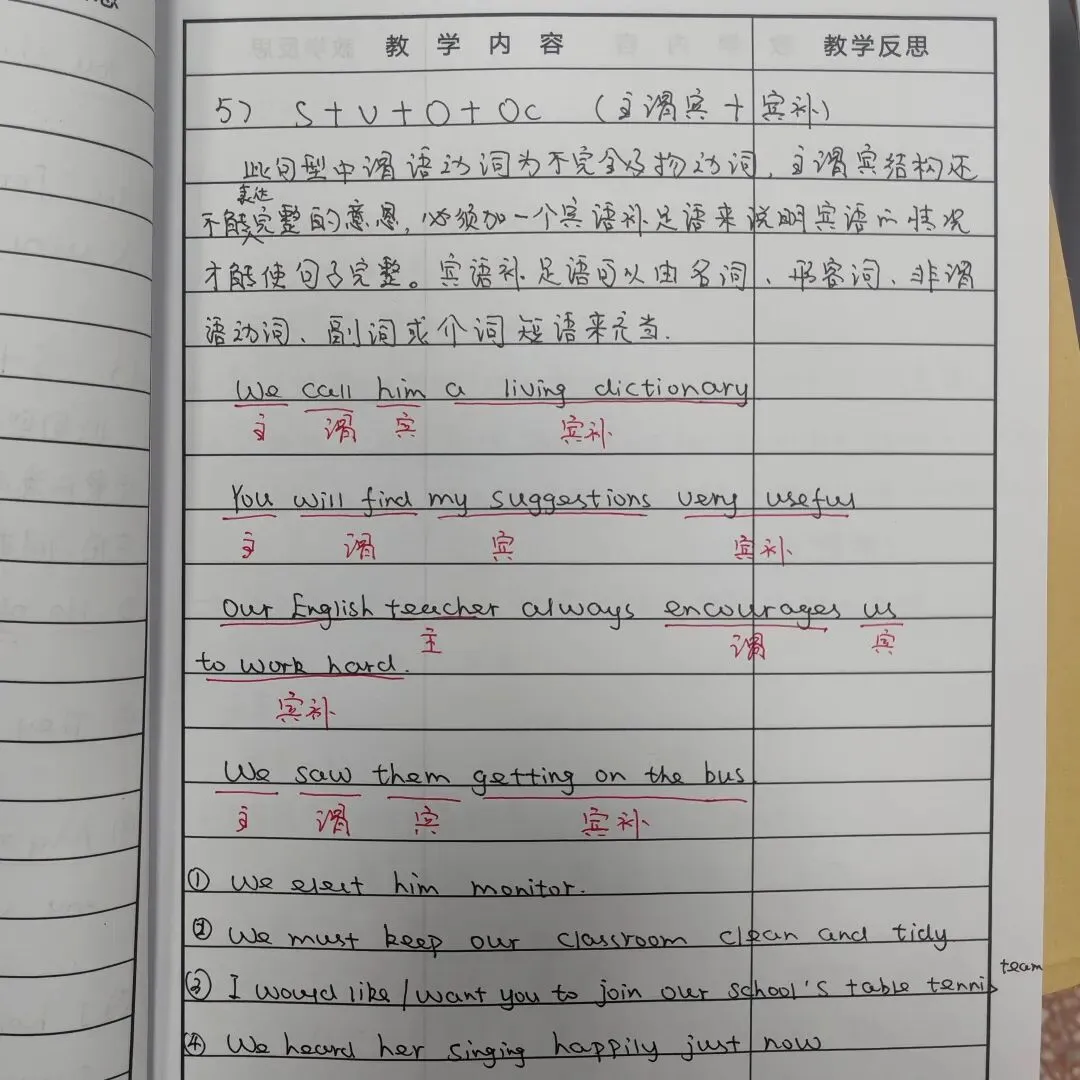 教 学 内 容 教学反思
5) S+V+O+Oc (主谓宾+宾补)
此句型中谓语动词为不完全及物动词,主谓宾结构还
表达
不能完整的意思,必须加一个宾语补足语来说明宾语的情况
才能使句子完整。宾语补足语可以由名词、形容词、非谓
语动词、副词或介词短语来充当.
We call him a living dictionary
主 谓 宾 宾补
You will find my suggestions very useful
主 谓 宾 宾补
Our English teacher always encourages us
主 谓 宾
to work hard.
宾补
We saw them getting on the bus.
主 谓 宾 宾补
① We elect him monitor.
② We must keep our classroom clean and tidy
team
③ I would like/want you to join our school's table tennis
④ We heard her singing happily just now